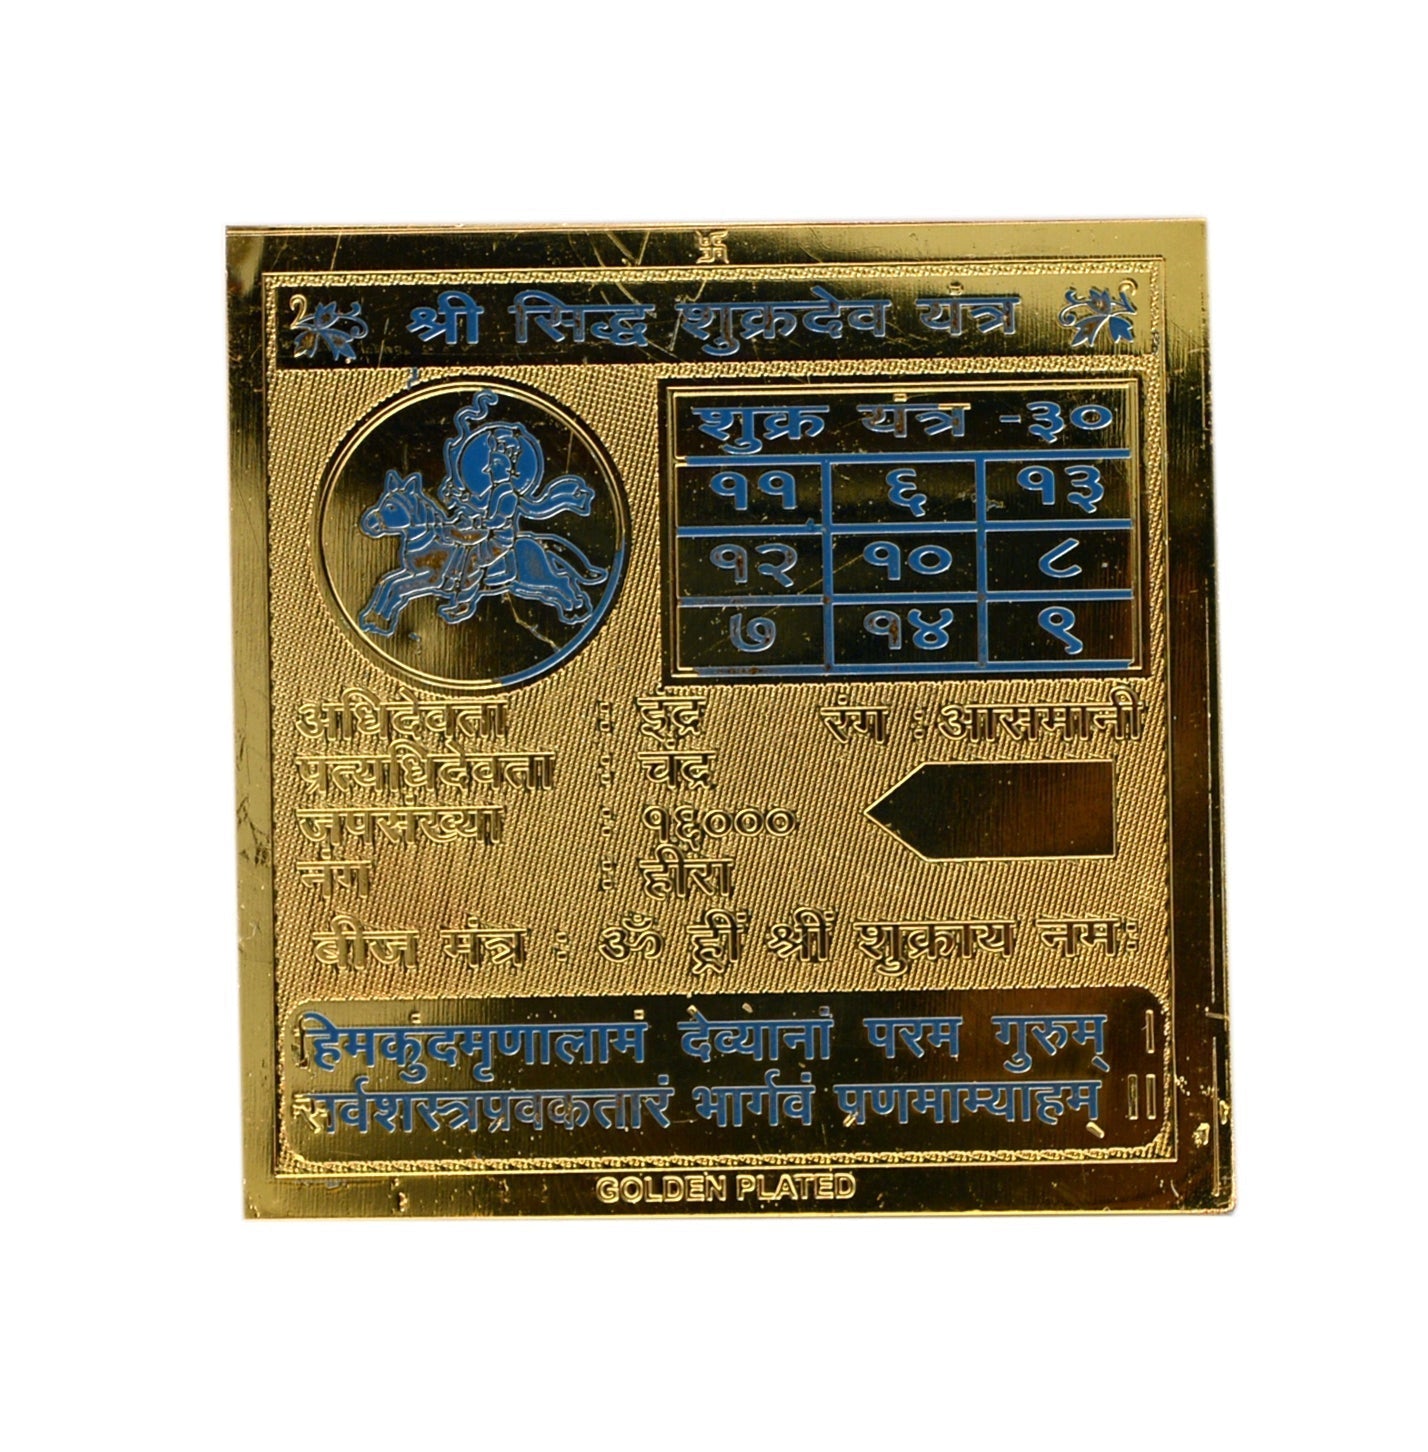 श्री सिद्ध शुक्रदेव यंत्र
शुक्र यंत्र -३०
११ ६ १३
१२ १० ८
७ १४ ९
अधिदेवता : इंद्र रंग : आसमानी
प्रत्यधिदेवता : चंद्र
जपसंख्या : १६०००
नंग : हीरा
बीज मंत्र : ॐ ह्रीं श्रीं शुक्राय नमः
हिमकुंदमृणालामं देव्यानां परम गुरुम् ।
सर्वशस्त्रप्रवकतारं भार्गवं प्रणमाम्याहम् ॥
GOLDEN PLATED